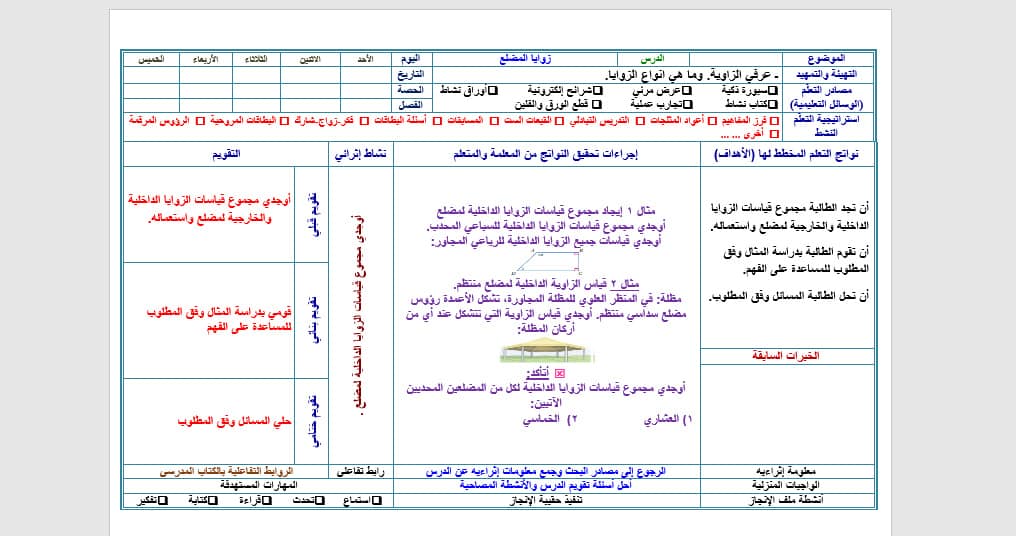 الموضوع
الدرس
زوايا المضلع
اليوم الأحد الاثنين الثلاثاء الأربعاء الخميس
التهيئة والتمهيد
ـ عرفي الزاوية. وما هي انواع الزوايا.
التاريخ
مصادر التعلم
(الوسائل التعليمية)
سبورة ذكية عرض مرئي شرائح إلكترونية أوراق نشاط
كتاب نشاط تجارب عملية قطع الورق والفلين
الحصة
الفصل
استراتيجية التعلم
النشط
فرز المفاهيم أعواد المثلجات التدريس التبادلي القبعات الست المسابقات أسئلة البطاقات فكر-زواج-شارك البطاقات المروحية الرؤوس المرقمة
أخرى ... ...
نواتج التعلم المخطط لها (الأهداف)
إجراءات تحقيق النواتج من المعلمة والمتعلم
نشاط إثرائي
التقويم
أن تجد الطالبة مجموع قياسات الزوايا
الداخلية والخارجية لمضلع واستعماله.
أن تقوم الطالبة بدراسة المثال وفق
المطلوب للمساعدة على الفهم.
أن تحل الطالبة المسائل وفق المطلوب.
الخبرات السابقة
مثال ١ إيجاد مجموع قياسات الزوايا الداخلية لمضلع
أوجدي مجموع قياسات الزوايا الداخلية للسباعي المحدب.
أوجدي قياسات جميع الزوايا الداخلية للرباعي المجاور:
مثال ٢ قياس الزاوية الداخلية لمضلع منتظم.
مظلة: في المنظر العلوي للمظلة المجاورة، تشكل الأعمدة رؤوس
مضلع سداسي منتظم. أوجدي قياس الزاوية التي تتشكل عند أي من
أركان المظلة:
أتأكد:
أوجدي مجموع قياسات الزوايا الداخلية لكل من المضلعين المحدبين
الآتيين:
١) العشاري ٢) الخماسي
أوجدي مجموع قياسات الزوايا الداخلية لمضلع .
تقويم قبلي
أوجدي مجموع قياسات الزوايا الداخلية
والخارجية لمضلع واستعماله.
تقويم بنائي
قومي بدراسة المثال وفق المطلوب
للمساعدة على الفهم
تقويم ختامي
حلي المسائل وفق المطلوب
معلومة إثراءيه
الرجوع إلى مصادر البحث وجمع معلومات إثراءيه عن الدرس
رابط تفاعلي
الروابط التفاعلية بالكتاب المدرسي
الواجبات المنزلية
أحل أسئلة تقويم الدرس والأنشطة المصاحبة
المهارات المستهدفة
أنشطة ملف الإنجاز
تنفيذ حقيبة الإنجاز
استماع تحدث قراءة كتابة تفكير